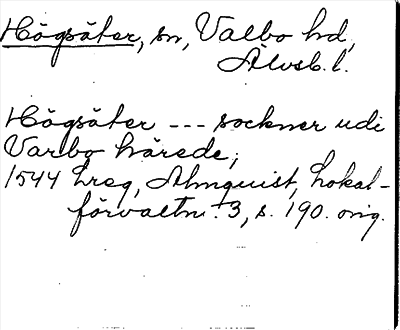 Högsäter, sn, Valbo hd,
Älvsb. l.
Högsäter --- sockner udi
Varbo härede;
1544 Lreg, Almquist, Lokal-
förvaltn. 3, s. 190. orig.